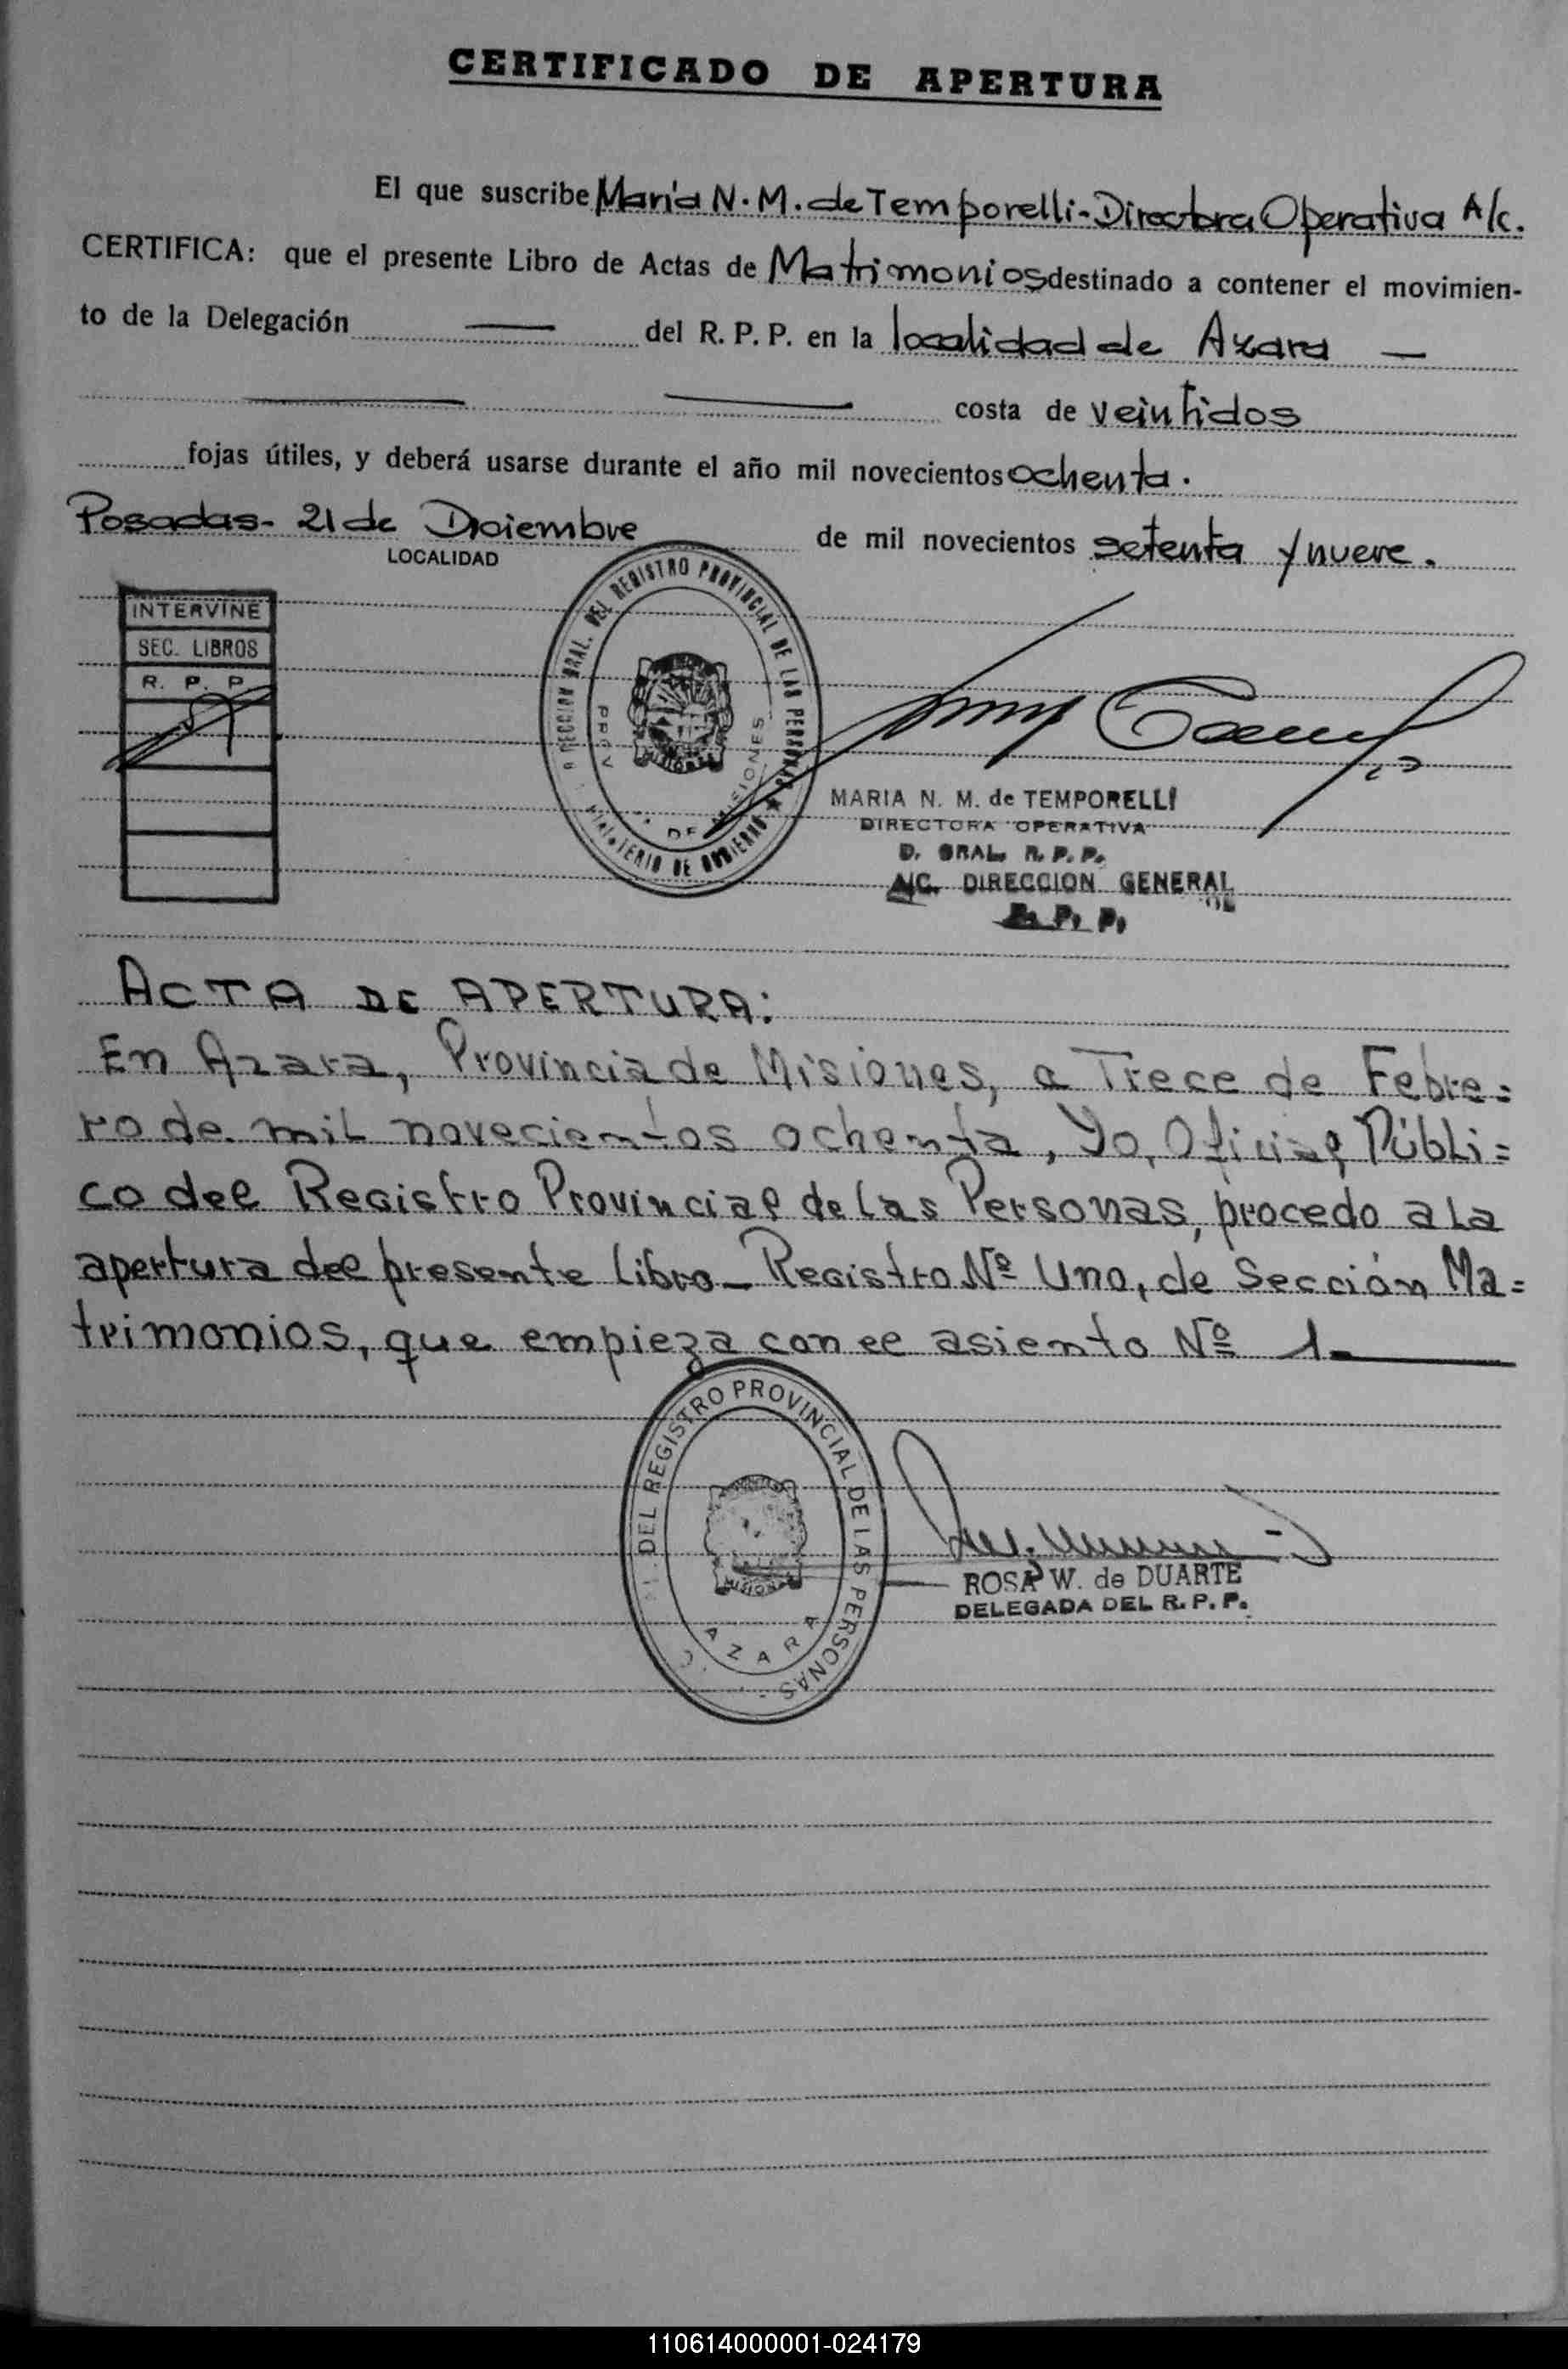 CERTIFICADO DE APERTURA
El que suscribe María N. M. de Temporelli - Directora Operativa A/c.
CERTIFICA: que el presente Libro de Actas de Matrimonios destinado a contener el movimien-
to de la Delegación — del R. P. P. en la localidad de Azara —
costa de veintidos
fojas útiles, y deberá usarse durante el año mil novecientos ochenta.
Posadas - 21 de Diciembre de mil novecientos setenta y nueve.
LOCALIDAD
INTERVINE
SEC. LIBROS
R. P. P
DEL REGISTRO PROVINCIAL DE LAS PERSONAS
PROV. DE MISIONES
MINISTERIO DE GOBIERNO
MISIONES
MARIA N. M. de TEMPORELLI
DIRECTORA OPERATIVA
D. GRAL. R. P. P.
A/C. DIRECCION GENERAL
R. P. P.
ACTA DE APERTURA:
En Azara, Provincia de Misiones, a Trece de Febre=
ro de mil novecientos ochenta, Yo, Oficial Públi=
co del Registro Provincial de las Personas, procedo a la
apertura del presente libro - Registro Nº Uno, de Sección Ma=
trimonios, que empieza con el asiento Nº 1.
DEL REGISTRO PROVINCIAL DE LAS PERSONAS
MISIONES
AZARA
ROSA W. de DUARTE
DELEGADA DEL R. P. P.
110614000001-024179